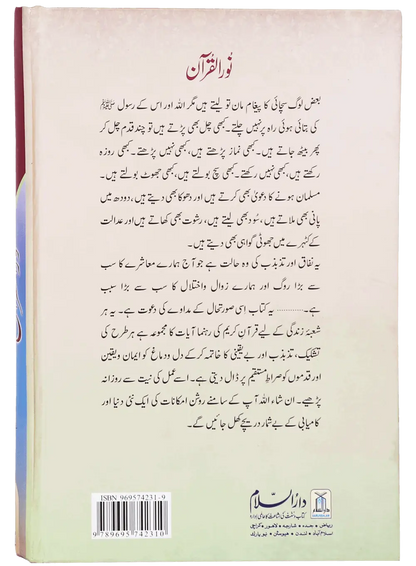 نُورُ القُرآن
بعض لوگ سچائی کا پیغام مان تو لیتے ہیں مگر اللہ اور اس کے رسول ﷺ
کی بتائی ہوئی راہ پر نہیں چلتے۔ کبھی چل بھی پڑتے ہیں تو چند قدم چل کر
پھر بیٹھ جاتے ہیں۔ کبھی نماز پڑھتے ہیں، کبھی نہیں پڑھتے۔ کبھی روزہ
رکھتے ہیں، کبھی نہیں رکھتے۔ کبھی سچ بولتے ہیں، کبھی جھوٹ بولتے ہیں۔
مسلمان ہونے کا دعویٰ بھی کرتے ہیں اور دھوکا بھی دیتے ہیں، دودھ میں
پانی بھی ملاتے ہیں، سُود بھی لیتے ہیں، رشوت بھی کھاتے ہیں اور عدالت
کے کٹہرے میں جھوٹی گواہی بھی دیتے ہیں۔
یہ نفاق اور تذبذب کی وہ حالت ہے جو آج ہمارے معاشرے کا سب
سے بڑا روگ اور ہمارے زوال واختلال کا سب سے بڑا سبب
ہے۔............ یہ کتاب اسی صورتحال کے مداوے کی دعوت ہے۔ یہ ہر
شعبۂ زندگی کے لیے قرآن کریم کی رہنما آیات کا مجموعہ ہے ہر طرح کی
تشکیک، تذبذب اور بے یقینی کا خاتمہ کر کے دل و دماغ کو ایمان و یقین
اور قدموں کو صراطِ مستقیم پر ڈال دیتی ہے۔ اسے عمل کی نیت سے روزانہ
پڑھیے۔ ان شاء اللہ آپ کے سامنے روشن امکانات کی ایک نئی دنیا اور
کامیابی کے بے شمار دریچے کھل جائیں گے۔
ISBN 969574231-9
9 789695 742310
دارالسلام
کتاب و سنت کی اشاعت کا عالمی ادارہ
ریاض • جدہ • شارجہ • لاہور • کراچی
اسلام آباد • لندن • ہیوسٹن • نیویارک